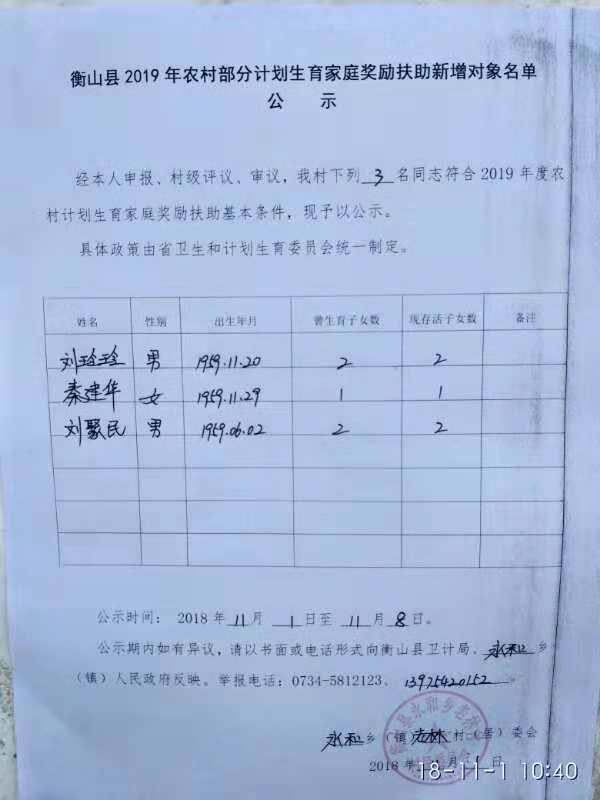 衡山县2019年农村部分计划生育家庭奖励扶助新增对象名单
公 示
经本人申报、村级评议、审议，我村下列3名同志符合2019年度农
村计划生育家庭奖励扶助基本条件，现予以公示。
具体政策由省卫生和计划生育委员会统一制定。
姓名 性别 出生年月 曾生育子女数 现存活子女数 备注
刘玲玲 男 1959.11.20 2 2
秦建华 女 1959.11.29 1 1
刘聚民 男 1959.06.02 2 2
公示时间： 2018年11月 1日至11月8日。
公示期内如有异议，请以书面或电话形式向衡山县卫计局、永和乡
（镇）人民政府反映。举报电话：0734-5812123、13975420152
永和乡（镇 村（居）委会
2018年 月1日
18-11-1 10:40